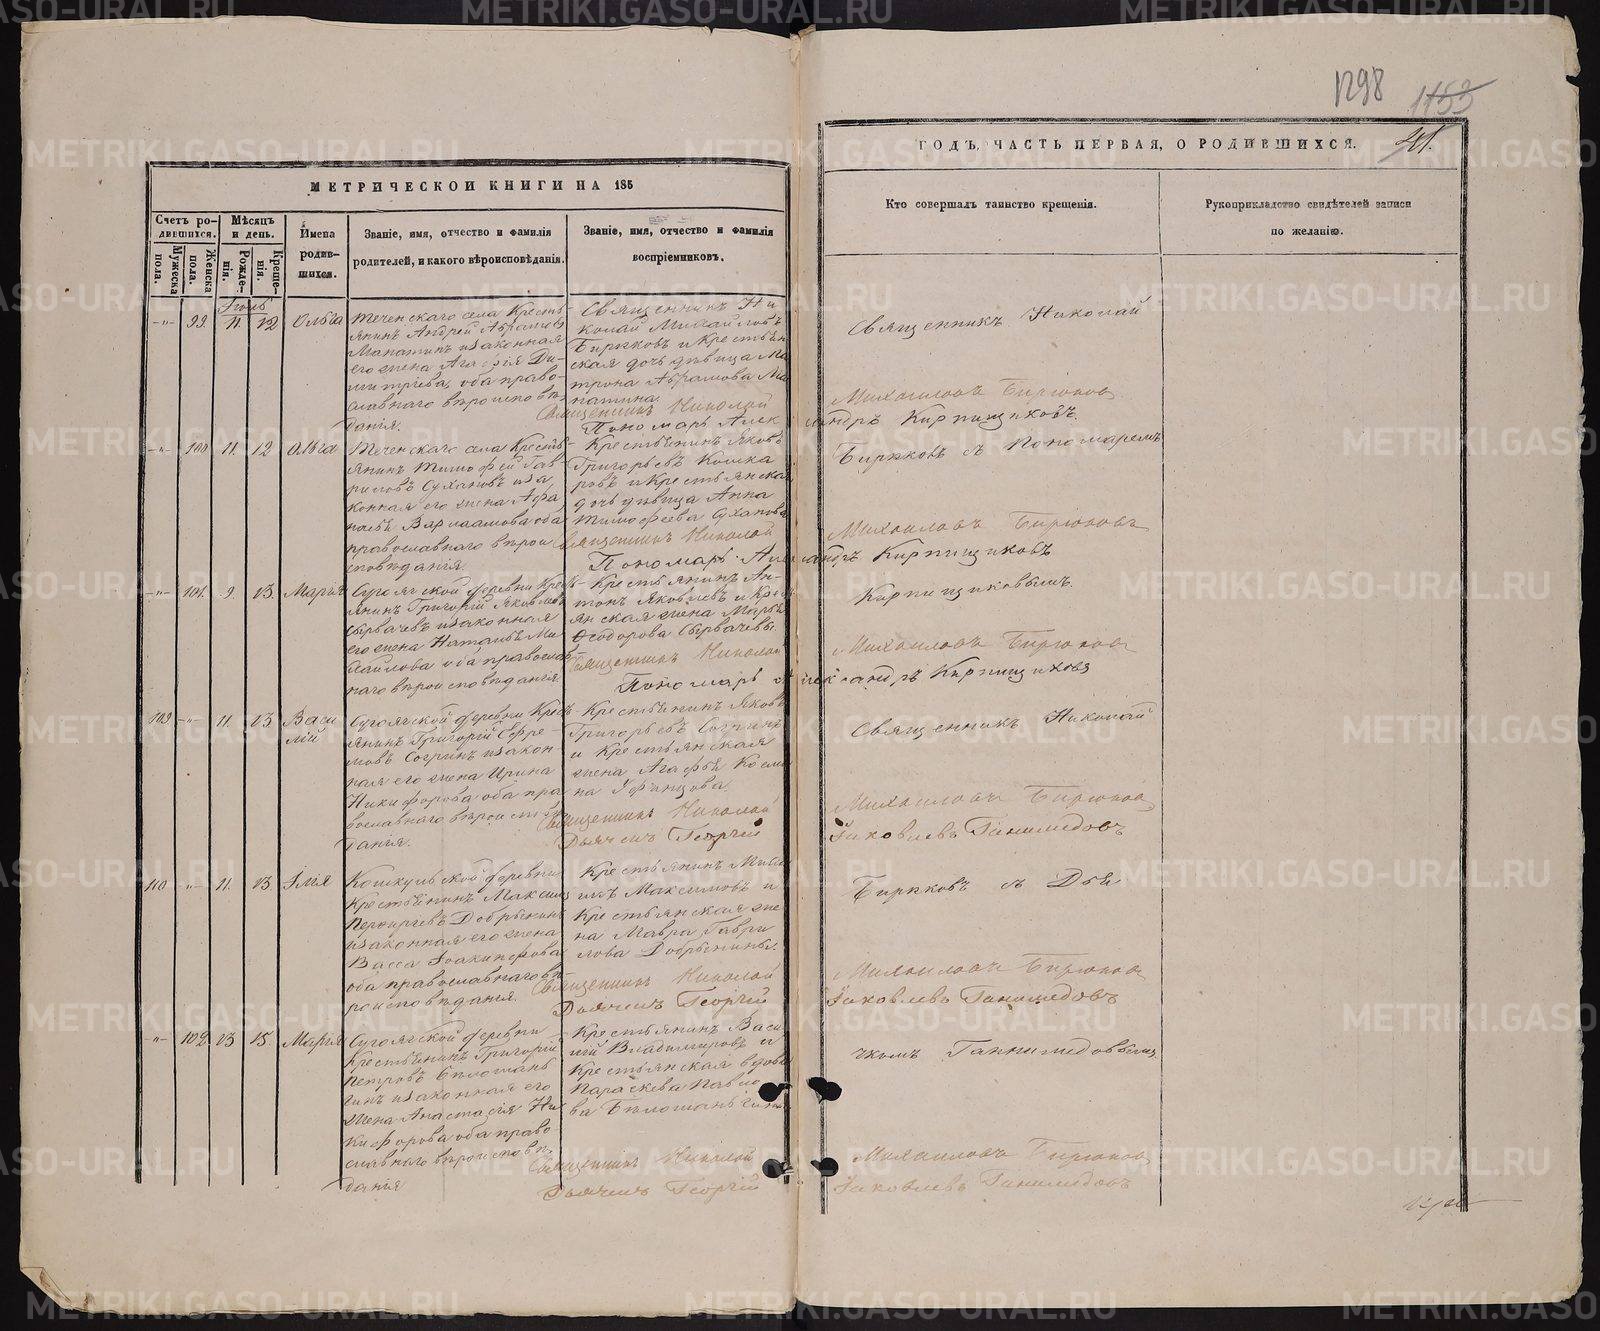 1298
1153
41.
МЕТРИЧЕСКОЙ КНИГИ НА 185
ГОДЪ, ЧАСТЬ ПЕРВАЯ, О РОДИВШИХСЯ.
Счетъ ро-
дившихся.
Мужеска
пола.
Женска
пола.
Мѣсяцъ
и день.
Рожде-
нія.
Креще-
нія.
Имена
родив-
шихся.
Званіе, имя, отчество и фамилія
родителей, и какого вѣроисповѣданія.
Званіе, имя, отчество и фамилія
воспріемниковъ.
Кто совершалъ таинство крещенія.
Рукоприкладство свидѣтелей записи
по желанію.
99 11 12 Ольга
Теченскаго села Кресть-
янинъ Андрей Абрамовъ
Мапатинъ изаконная
его жена Агафія Ди-
митріева, оба право-
славнаго вѣроисповѣ-
данія.
Священникъ Ни-
колай Михайловъ
Бирюковъ и Крестьян
ская дочь дѣвица Ма
трона Абрамова Ма
патина
Священникъ Николай
Пономарь Алек
Священникъ Николай
Михаиловъ Бирюков
сандръ Кирпищиковъ.
100 11. 12 Ольга
Теченскаго села Кресть-
янинъ Тимофей Гав-
риловъ Сухановъ иза
конная его жена Афа
насья Варлаамова оба
православнаго вѣрои
сповѣданія.
Крестьянинъ Яковъ
Григорьевъ Кошка
ровъ и Крестьянская
дочь дѣвица Анна
Тимофеева Суханова
Священникъ Николай
Пономарь Алек
Бирюковъ съ Пономаремъ
Михаиловъ Бирюковъ
сандръ Кирпищиковъ
101. 9. 13 Марія
Сугоякской деревни Крест-
янинъ Григорій Яковлевъ
Сырвачевъ изаконная
его жена Наталья Ми
хайлова оба православ
наго вѣроисповѣданія
Крестьянинъ Ан-
тонъ Яковлевъ и Крест
янская жена Марья
Ѳеодорова Сырвачевы.
Священникъ Николай
Пономарь Алек
Кирпищиковымъ.
Михаиловъ Бирюков
сандръ Кирпищиковъ
109 11. 13 Васи
лій
Сугоякской деревни Крест
янинъ Григорій Ефре-
мовъ Согринъ изакон
ная его жена Ирина
Никифорова оба пра
вославнаго вѣроиспо
данія.
Крестьянинъ Яковъ
Григорьевъ Согринъ
и Крестьянская
жена Агафья Косми
на
Священникъ Николай
Дьячекъ Георгій
Священникъ Николай
Михаиловъ Бирюков
Яковлевъ Ганимедовъ
110 11. 13. Илія
Кошкульской деревни
Крестьянинъ Максимъ
Порфирьевъ Добрынинъ
изаконная его жена
Васса Іоакинфова
оба православнаго вѣ-
роисповѣданія.
Крестьянинъ Миха
илъ Максимовъ и
Крестьянская же
на Мавра Гаври
лова Добрынины.
Священникъ Николай
Дьячекъ Георгій
Бирюковъ съ Дья
Михаиловъ Бирюков
Яковлевъ Ганимедовъ
102 13 15. Марія
Сугоякской деревни
Крестьянинъ Григорій
Петровъ
изаконная его
жена Анастасія Ни
кифорова оба право
славнаго вѣроисповѣ-
данія
Крестьянинъ Васи
лій Владимировъ и
Крестьянская вдова
Параскева Павло
ва
Священникъ Николай
Дьячекъ Георгій
чкомъ Ганнимедовымъ
Михаиловъ Бирюков
Яковлевъ Ганимедовъ
METRIKI.GASO-URAL.RU